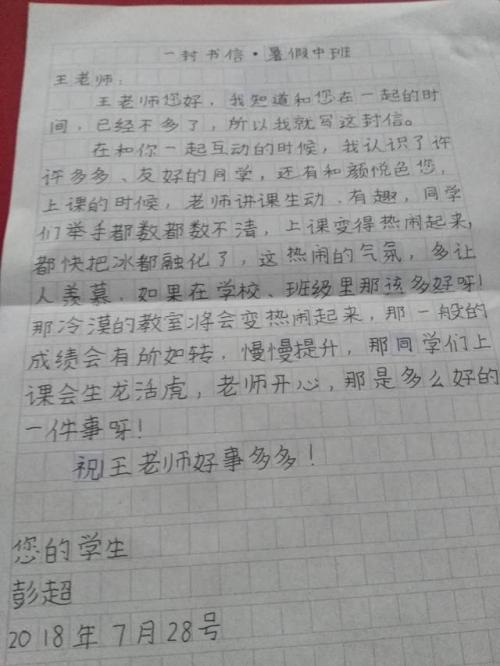 一封书信·暑假中班
王老师:
王老师您好，我知道和您在一起的时
间，已经不多了，所以我就写这封信。
在和你一起互动的时候，我认识了许
许多多、友好的同学，还有和颜悦色您，
上课的时候，老师讲课生动、有趣，同学
们举手都数都数不清，上课变得热闹起来，
都快把冰都融化了，这热闹的气氛，多让
人羡慕，如果在学校、班级里那该多好呀！
那冷漠的教室将会变热闹起来，那一般的
成绩会有所如转，慢慢提升，那同学们上
课会生龙活虎，老师开心，那是多么好的
一件事呀！
祝王老师好事多多！
您的学生
彭超
2018年7月28号